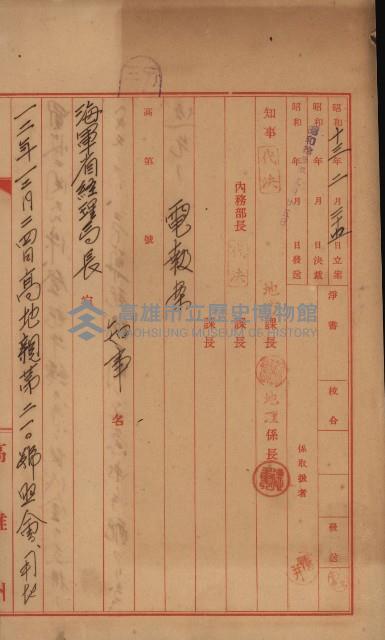 昭和十三年二月二五日立案
昭和 年 月 日決裁
昭和 年 月 日發送
淨書
校合
發送
係取扱者
知事
代決
地 課長
地理係長
內務部長
代決
課長
課長
電報案
高第 號
知事名
海軍省經理局長宛
一二年一二月二四日高地親第二一〇號照會、用地
高雄市立歷史博物館
KAOHSIUNG MUSEUM OF HISTORY
高雄州